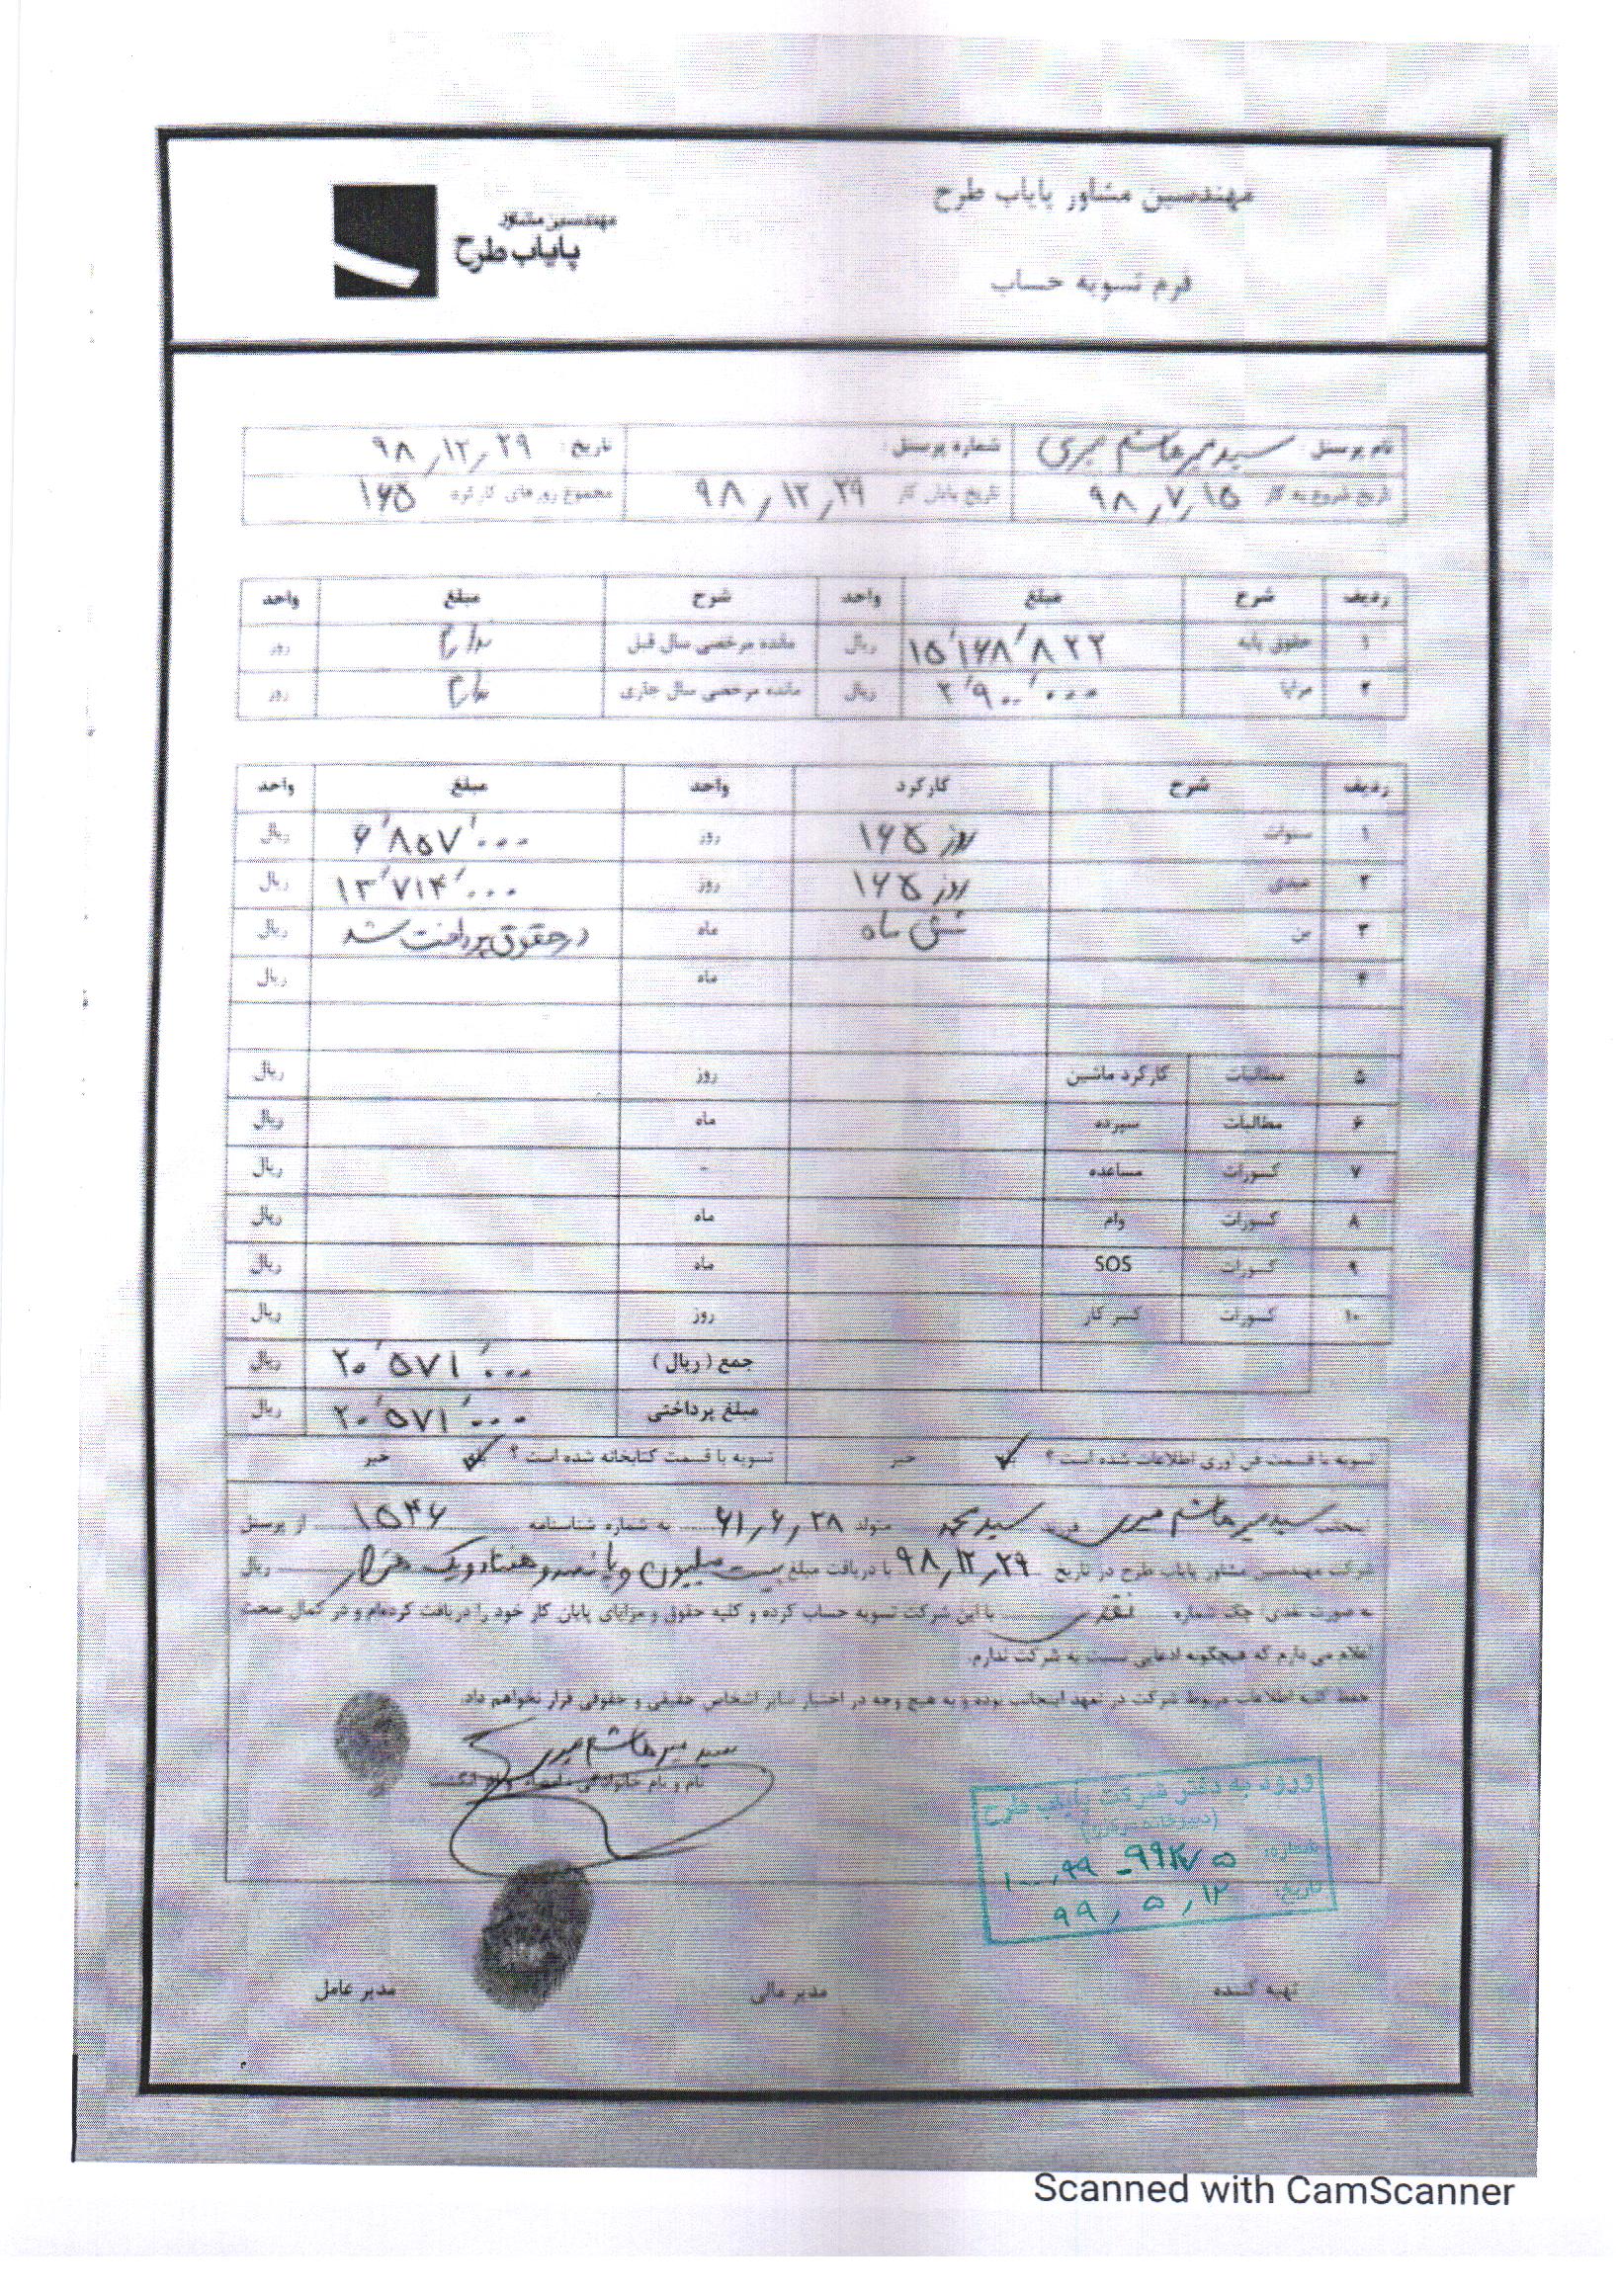 مهندسین مشاور پایاب طرح
مهندسین مشاور
پایاب طرح
فرم تسویه حساب
نام پرسنل: سید میرهاشم میری شماره پرسنل: تاریخ: ۹۸/۱۲/۲۹
تاریخ شروع به کار ۹۸/۷/۱۵ تاریخ پایان کار ۹۸/۱۲/۲۹ مجموع روزهای کارکرد ۱۶۵
ردیف شرح مبلغ واحد شرح مبلغ واحد
۱ حقوق پایه ۱۵٬۱۶۸٬۸۲۲ ریال مانده مرخصی سال قبل ندارد روز
۲ مزایا ۲٬۹۰۰٬۰۰۰ ریال مانده مرخصی سال جاری ندارد روز
ردیف شرح کارکرد واحد مبلغ واحد
۱ سنوات ۱۶۵ روز روز ۶٬۸۵۷٬۰۰۰ ریال
۲ عیدی ۱۶۵ روز روز ۱۳٬۷۱۴٬۰۰۰ ریال
۳ بن شش ماه ماه در حقوق پرداخت شد ریال
۴ ماه ریال
۵ مطالبات کارکرد ماشین روز ریال
۶ مطالبات سپرده ماه ریال
۷ کسورات مساعده - ریال
۸ کسورات وام ماه ریال
۹ کسورات SOS ماه ریال
۱۰ کسورات کسر کار روز ریال
جمع (ریال) ۲۰٬۵۷۱٬۰۰۰ ریال
مبلغ پرداختی ۲۰٬۵۷۱٬۰۰۰ ریال
تسویه با قسمت فن آوری اطلاعات شده است؟ ✓ خیر تسویه با قسمت کتابخانه شده است؟ بلی ✓ خیر
اینجانب سید میرهاشم میری فرزند سید محمد متولد ۶۱/۶/۲۸ به شماره شناسنامه ۱۵۴۶ از پرسنل
شرکت مهندسین مشاور پایاب طرح در تاریخ ۹۸/۱۲/۲۹ با دریافت مبلغ بیست میلیون و پانصد و هفتاد و یک هزار ریال
به صورت نقدی/ چک شماره نقدی با این شرکت تسویه حساب کرده و کلیه حقوق و مزایای پایان کار خود را دریافت کرده‌ام و در کمال صحت
اعلام می دارم که هیچگونه ادعایی نسبت به شرکت ندارم.
حفظ کلیه اطلاعات مربوط شرکت در تعهد اینجانب بوده و به هیچ وجه در اختیار سایر اشخاص حقیقی و حقوقی قرار نخواهم داد.
سید میرهاشم میری
نام و نام خانوادگی، امضاء و اثر انگشت
ورود به دفتر شرکت پایاب طرح
(دبیرخانه مرکزی)
شماره:
تاریخ: ۹۹/۵/۱۲
تهیه کننده مدیر مالی مدیر عامل
Scanned with CamScanner